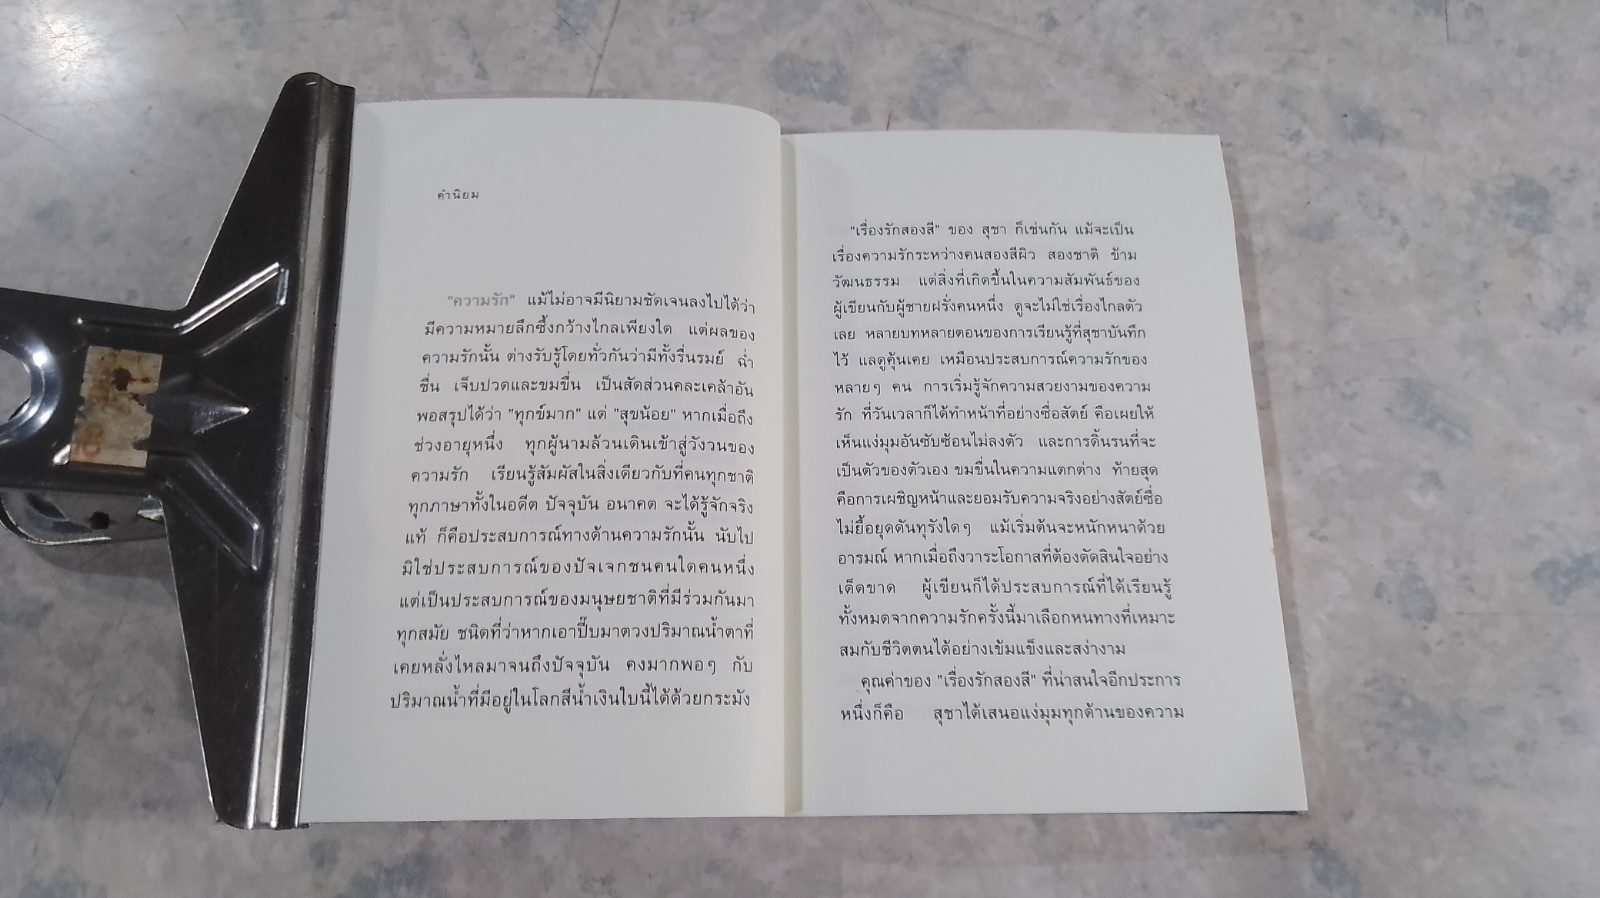 คำนิยม
"ความรัก" แม้ไม่อาจมีนิยามชัดเจนลงไปได้ว่า
มีความหมายลึกซึ้งกว้างไกลเพียงใด แต่ผลของ
ความรักนั้น ต่างรับรู้โดยทั่วกันว่ามีทั้งรื่นรมย์ ฉ่ำ
ชื่น เจ็บปวดและขมขื่น เป็นสัดส่วนคละเคล้าอัน
พอสรุปได้ว่า "ทุกข์มาก" แต่ "สุขน้อย" หากเมื่อถึง
ช่วงอายุหนึ่ง ทุกผู้นามล้วนเดินเข้าสู่วังวนของ
ความรัก เรียนรู้สัมผัสในสิ่งเดียวกับที่คนทุกชาติ
ทุกภาษาทั้งในอดีต ปัจจุบัน อนาคต จะได้รู้จักจริง
แท้ ก็คือประสบการณ์ทางด้านความรักนั้น นับไป
มิใช่ประสบการณ์ของปัจเจกชนคนใดคนหนึ่ง
แต่เป็นประสบการณ์ของมนุษยชาติที่มีร่วมกันมา
ทุกสมัย ชนิดที่ว่าหากเอาปี๊บมาตวงปริมาณน้ำตาที่
เคยหลั่งไหลมาจนถึงปัจจุบัน คงมากพอๆ กับ
ปริมาณน้ำที่มีอยู่ในโลกสีน้ำเงินใบนี้ได้ด้วยกระมัง
"เรื่องรักสองสี" ของ สุชา ก็เช่นกัน แม้จะเป็น
เรื่องความรักระหว่างคนสองสีผิว สองชาติ ข้าม
วัฒนธรรม แต่สิ่งที่เกิดขึ้นในความสัมพันธ์ของ
ผู้เขียนกับผู้ชายฝรั่งคนหนึ่ง ดูจะไม่ใช่เรื่องไกลตัว
เลย หลายบทหลายตอนของการเรียนรู้ที่สุชาบันทึก
ไว้ แลดูคุ้นเคย เหมือนประสบการณ์ความรักของ
หลายๆ คน การเริ่มรู้จักความสวยงามของความ
รัก ที่วันเวลาก็ได้ทำหน้าที่อย่างซื่อสัตย์ คือเผยให้
เห็นแง่มุมอันซับซ้อนไม่ลงตัว และการดิ้นรนที่จะ
เป็นตัวของตัวเอง ขมขื่นในความแตกต่าง ท้ายสุด
คือการเผชิญหน้าและยอมรับความจริงอย่างสัตย์ซื่อ
ไม่ยื้อยุดดันทุรังใดๆ แม้เริ่มต้นจะหนักหนาด้วย
อารมณ์ หากเมื่อถึงวาระโอกาสที่ต้องตัดสินใจอย่าง
เด็ดขาด ผู้เขียนก็ได้ประสบการณ์ที่ได้เรียนรู้
ทั้งหมดจากความรักครั้งนี้มาเลือกหนทางที่เหมาะ
สมกับชีวิตตนได้อย่างเข้มแข็งและสง่างาม
คุณค่าของ "เรื่องรักสองสี" ที่น่าสนใจอีกประการ
หนึ่งก็คือ สุชาได้เสนอแง่มุมทุกด้านของความ